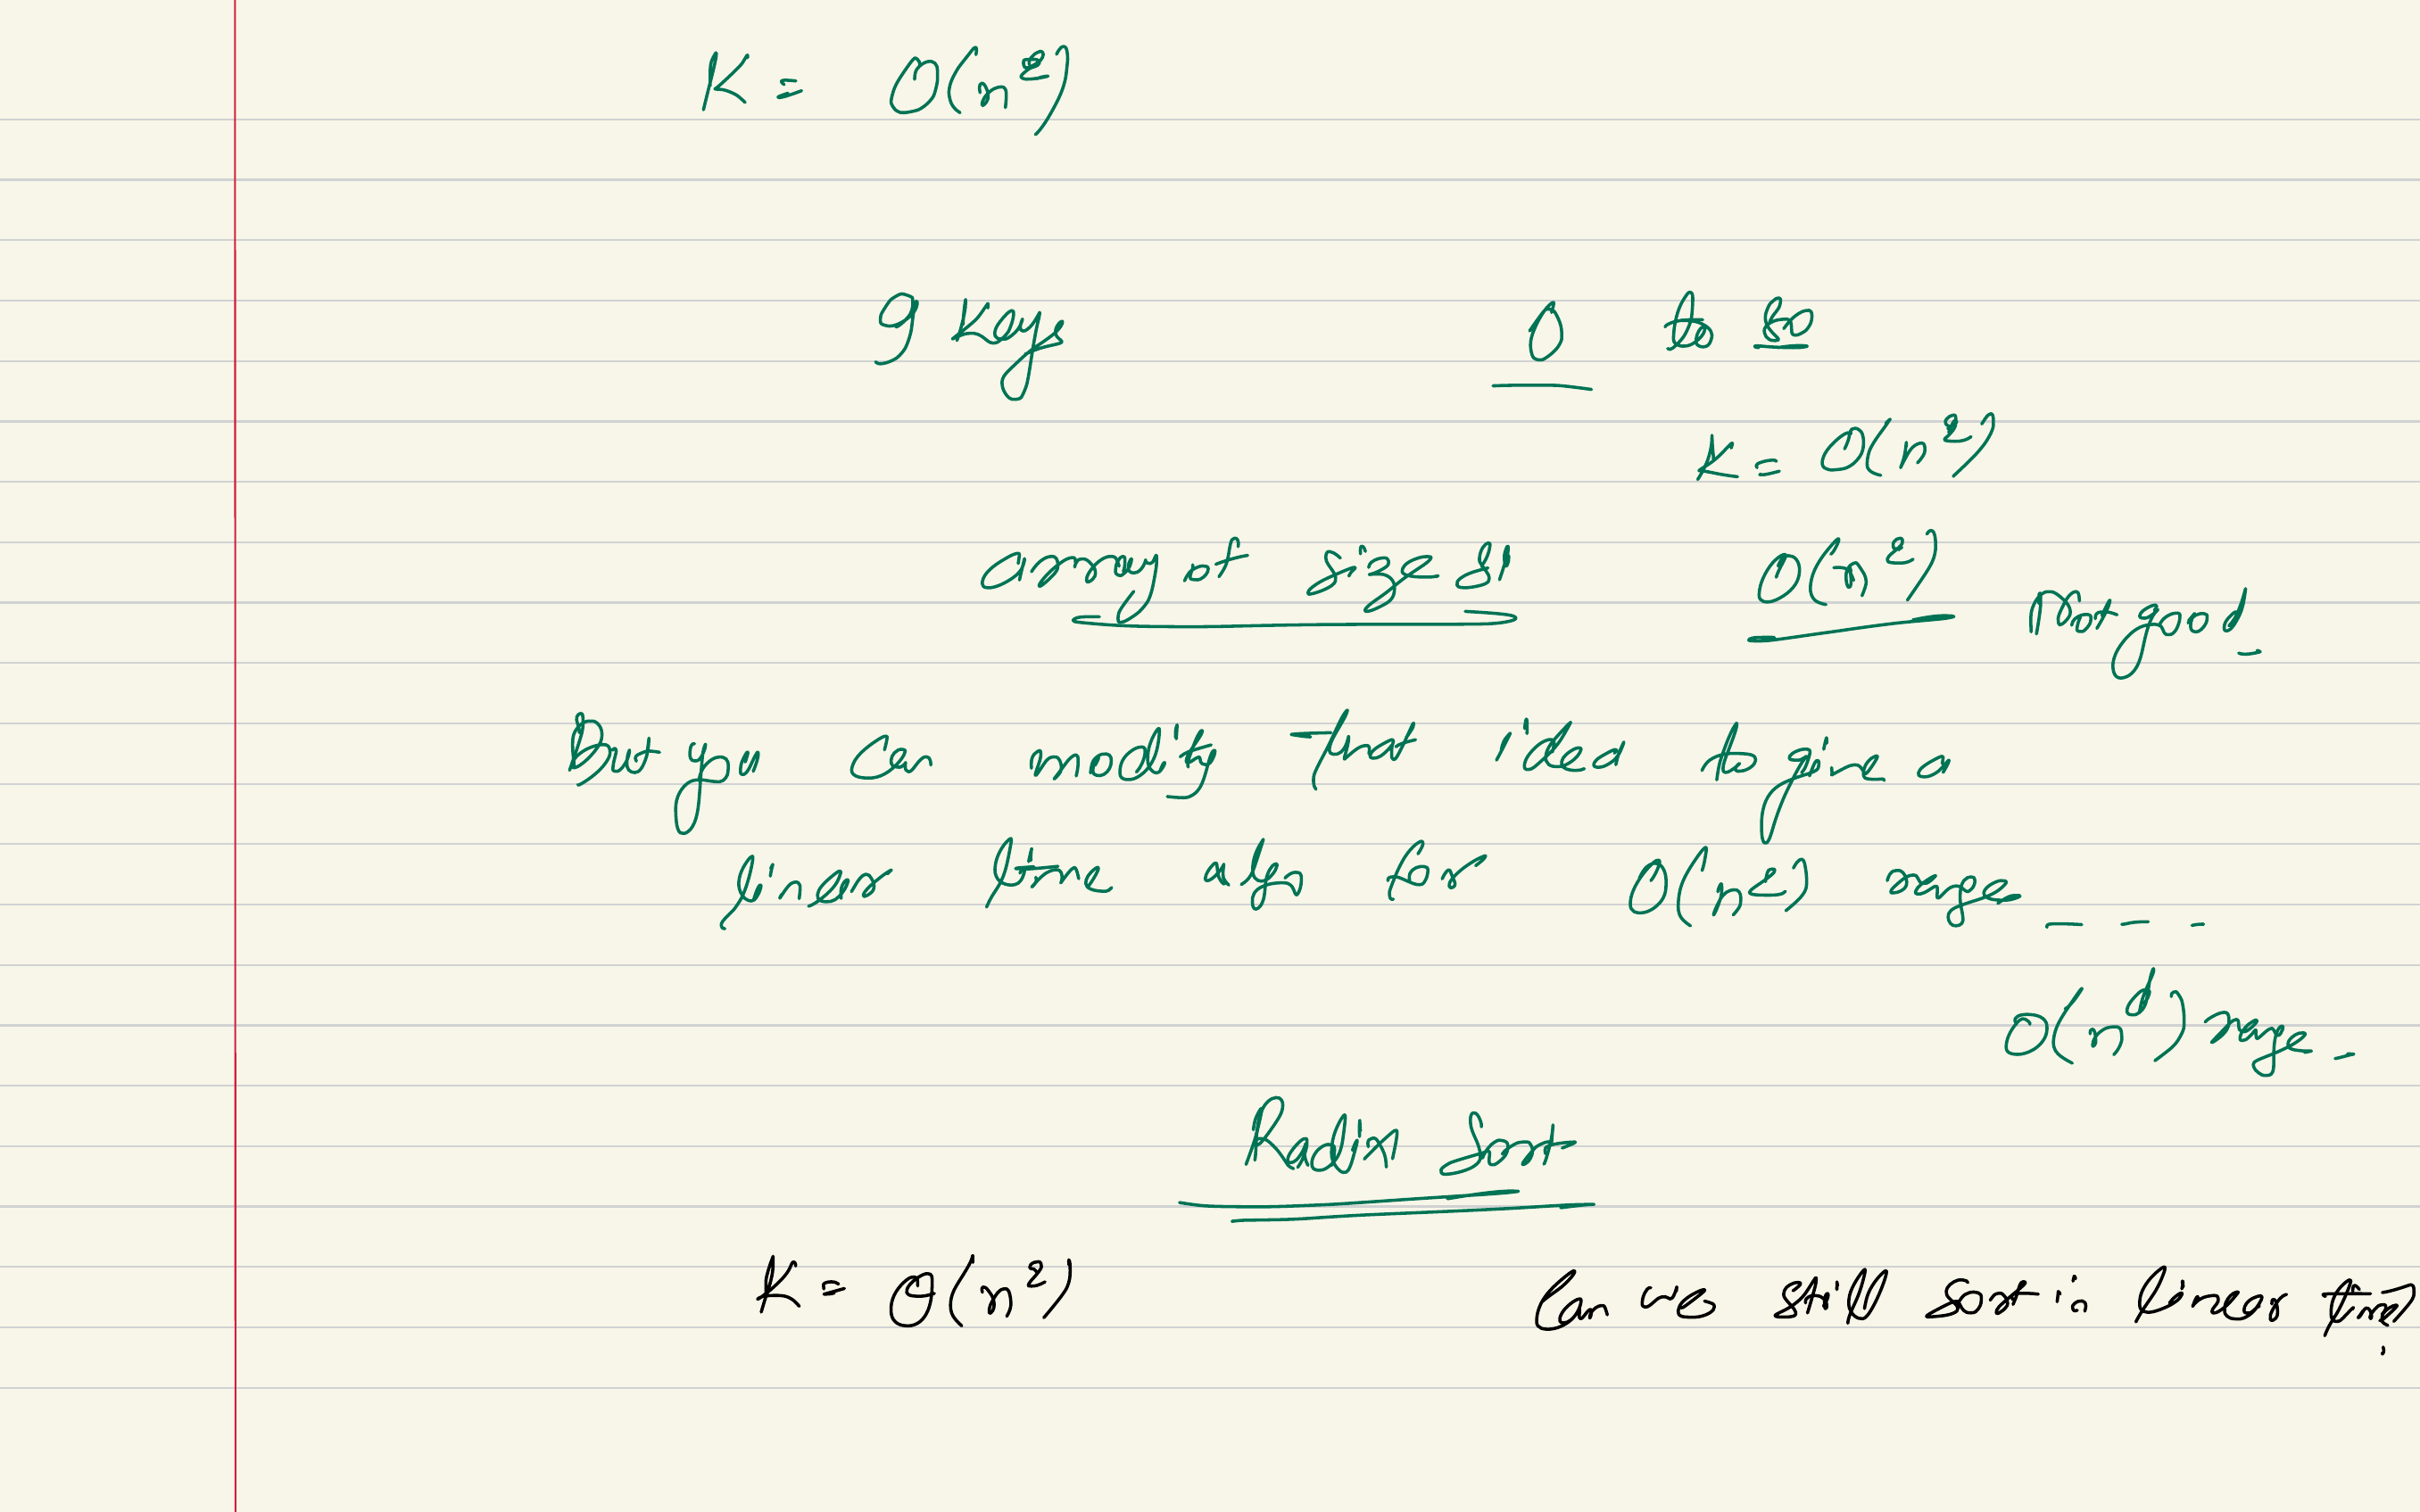 K = O(n²)
9 Keys 0 to 80
K = O(n²)
array of size 81 O(n²) Not good.
But you can modify that idea to give a
linear time algo for O(n²) range - - -
O(n^d) range -
Radix Sort
K = O(n²) Can we still sort in linear time?